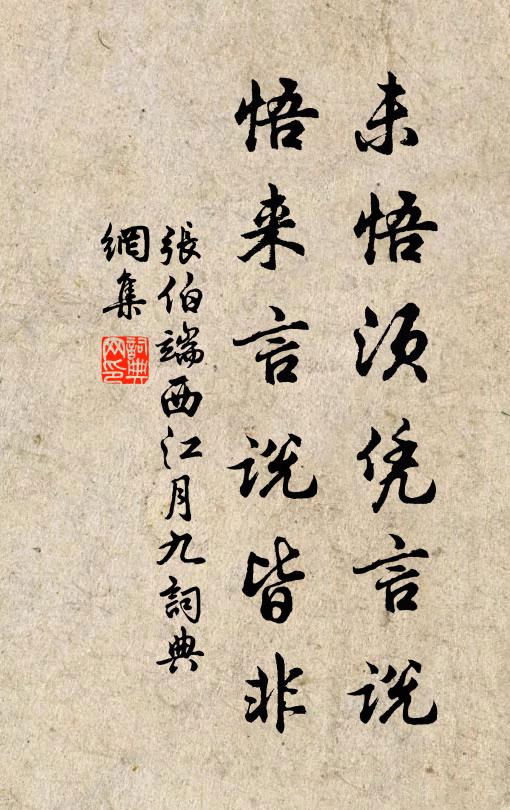 未悟须凭言说
悟来言说皆非
張伯端西江月九詞典
網集
詞典
网印